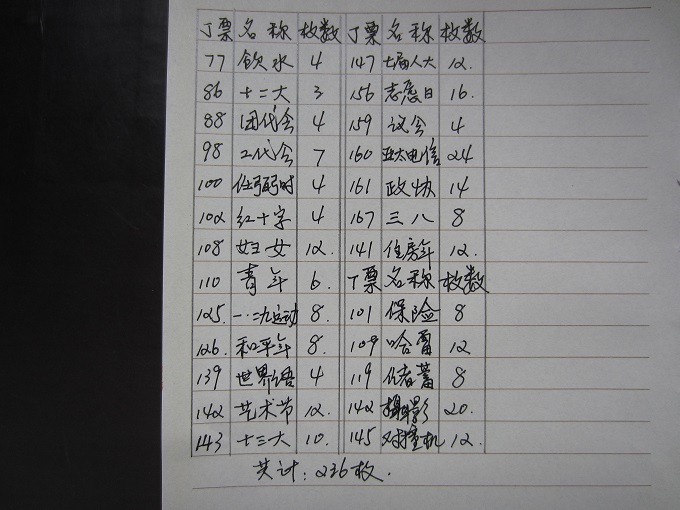 J票 名称 枚数 J票 名称 枚数
77 飲水 4 147 七届人大 12.
86 十二大 3 156 志愿日 16.
88 团代会 4 159 议会 4
98 工代会 7 160 亚太电信 24
100 任弼时 4 161 政协 14
102 红十字 4 167 三八 8
108 妇女 12. 141 住房年 12.
110 青年 6. T票 名称 枚数
125. 一·二九运动 8. 101 保险 8
126. 和平年 8. 109 哈雷 12
139 世界语 4 119 储蓄 8
142 艺术节 12. 142 摄影 20.
143 十三大 10. 145 对撞机 12.
共计：236枚.